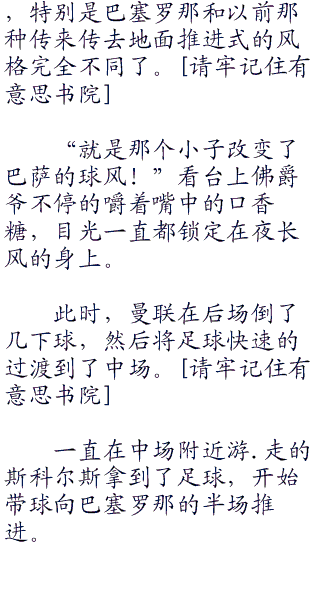 ，特别是巴塞罗那和以前那
种传来传去地面推进式的风
格完全不同了。[请牢记住有
意思书院]
“就是那个小子改变了
巴萨的球风！”看台上佛爵
爷不停的嚼着嘴中的口香
糖，目光一直都锁定在夜长
风的身上。
此时，曼联在后场倒了
几下球，然后将足球快速的
过渡到了中场。[请牢记住有
意思书院]
一直在中场附近游.走的
斯科尔斯拿到了足球，开始
带球向巴塞罗那的半场推
进。